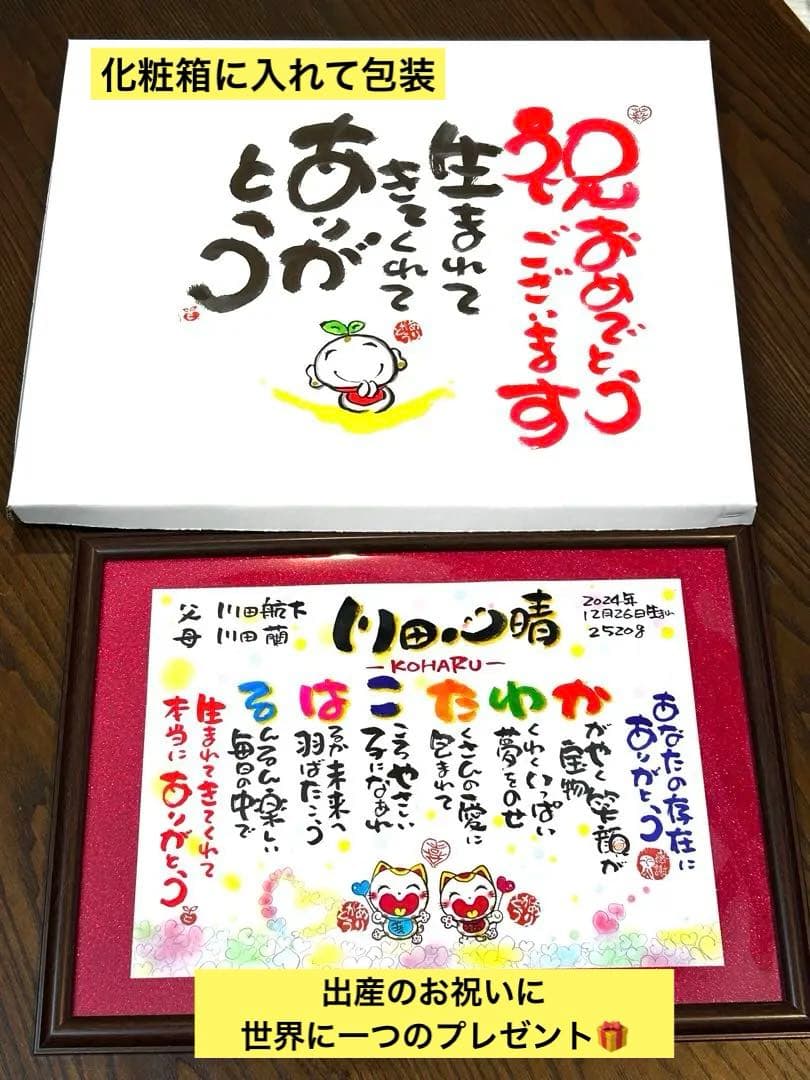 化粧箱に入れて包装
祝おめでとう
ございます
生まれて
きてくれて
ありが
とう
父 川田航
母 川田 蘭
川田心晴
－KOHARU－
2024年
12月26日生まれ
2520g
あなたの存在に
ありがとう
かがやく笑顔が
宝物
わくわくいっぱい
夢をのせ
たくさんの愛に
包まれて
こころやさしい
子になあれ
はるか未来へ
羽ばたこう
るんるん楽しい
毎日の中で
生まれてきてくれて
本当にありがとう
出産のお祝いに
世界に一つのプレゼント🎁